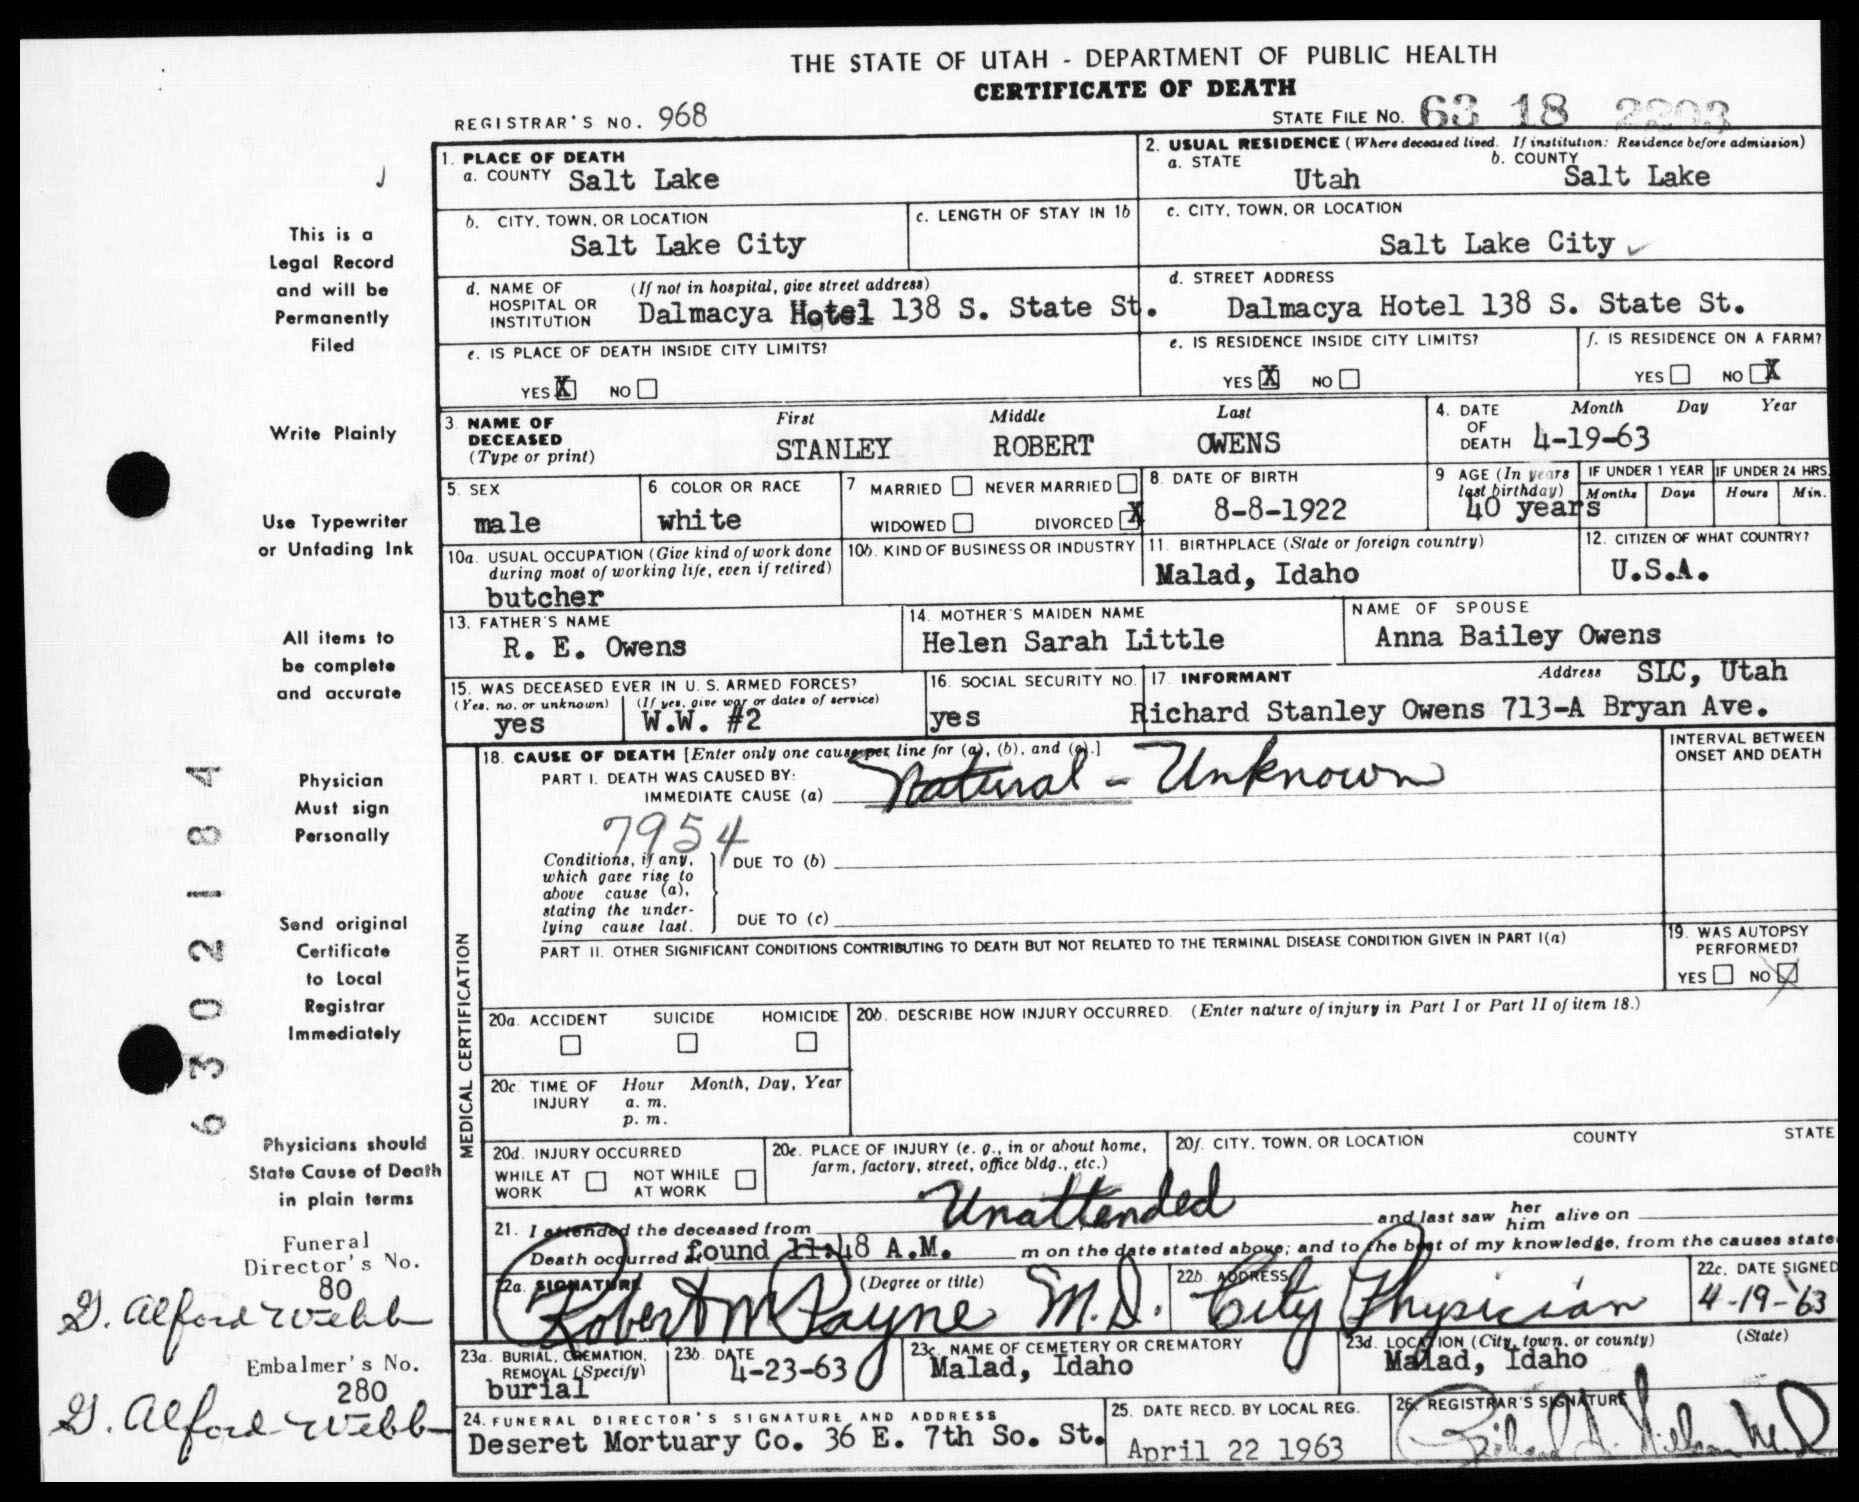 THE STATE OF UTAH - DEPARTMENT OF PUBLIC HEALTH
CERTIFICATE OF DEATH
REGISTRAR'S NO. 968
STATE FILE NO. 63 18 2203
1. PLACE OF DEATH
a. COUNTY Salt Lake
2. USUAL RESIDENCE (Where deceased lived. If institution: Residence before admission)
a. STATE Utah
b. COUNTY Salt Lake
b. CITY, TOWN, OR LOCATION
Salt Lake City
c. LENGTH OF STAY IN 1b
c. CITY, TOWN, OR LOCATION
Salt Lake City
d. NAME OF HOSPITAL OR INSTITUTION (If not in hospital, give street address)
Dalmacya Hotel 138 S. State St.
d. STREET ADDRESS
Dalmacya Hotel 138 S. State St.
e. IS PLACE OF DEATH INSIDE CITY LIMITS?
YES X NO
e. IS RESIDENCE INSIDE CITY LIMITS?
YES X NO
f. IS RESIDENCE ON A FARM?
YES NO X
3. NAME OF DECEASED (Type or print)
First Middle Last
STANLEY ROBERT OWENS
4. DATE OF DEATH Month Day Year
4-19-63
5. SEX
male
6. COLOR OR RACE
white
7 MARRIED NEVER MARRIED
WIDOWED DIVORCED X
8. DATE OF BIRTH
8-8-1922
9 AGE (In years last birthday)
40 years
IF UNDER 1 YEAR
Months Days
IF UNDER 24 HRS.
Hours Min.
10a. USUAL OCCUPATION (Give kind of work done during most of working life, even if retired)
butcher
10b. KIND OF BUSINESS OR INDUSTRY
11. BIRTHPLACE (State or foreign country)
Malad, Idaho
12. CITIZEN OF WHAT COUNTRY?
U.S.A.
13. FATHER'S NAME
R. E. Owens
14. MOTHER'S MAIDEN NAME
Helen Sarah Little
NAME OF SPOUSE
Anna Bailey Owens
15. WAS DECEASED EVER IN U. S. ARMED FORCES?
(Yes, no, or unknown) (If yes, give war or dates of service)
yes W.W. #2
16. SOCIAL SECURITY NO.
yes
17. INFORMANT Address SLC, Utah
Richard Stanley Owens 713-A Bryan Ave.
18. CAUSE OF DEATH [Enter only one cause per line for (a), (b), and (c).]
PART I. DEATH WAS CAUSED BY:
IMMEDIATE CAUSE (a) Natural - Unknown
INTERVAL BETWEEN ONSET AND DEATH
7954
Conditions, if any, which gave rise to above cause (a), stating the underlying cause last.
DUE TO (b)
DUE TO (c)
PART II. OTHER SIGNIFICANT CONDITIONS CONTRIBUTING TO DEATH BUT NOT RELATED TO THE TERMINAL DISEASE CONDITION GIVEN IN PART I(a)
19. WAS AUTOPSY PERFORMED?
YES NO X
MEDICAL CERTIFICATION
20a. ACCIDENT SUICIDE HOMICIDE
20b. DESCRIBE HOW INJURY OCCURRED. (Enter nature of injury in Part I or Part II of item 18.)
20c. TIME OF INJURY Hour Month, Day, Year
a. m.
p. m.
20d. INJURY OCCURRED
WHILE AT WORK NOT WHILE AT WORK
20e. PLACE OF INJURY (e. g., in or about home, farm, factory, street, office bldg., etc.)
20f. CITY, TOWN, OR LOCATION COUNTY STATE
21. I attended the deceased from Unattended and last saw her him alive on
Death occurred at found 11:48 A.M. m on the date stated above; and to the best of my knowledge, from the causes state
22a. SIGNATURE (Degree or title)
Robert W Payne M.D.
22b. ADDRESS
City Physician
22c. DATE SIGNED
4-19-63
23a. BURIAL, CREMATION, REMOVAL (Specify)
burial
23b. DATE
4-23-63
23c. NAME OF CEMETERY OR CREMATORY
Malad, Idaho
23d. LOCATION (City, town, or county) (State)
Malad, Idaho
24. FUNERAL DIRECTOR'S SIGNATURE AND ADDRESS
Deseret Mortuary Co. 36 E. 7th So. St.
25. DATE RECD. BY LOCAL REG.
April 22 1963
26. REGISTRAR'S SIGNATURE
This is a
Legal Record
and will be
Permanently
Filed
Write Plainly
Use Typewriter
or Unfading Ink
All items to
be complete
and accurate
Physician
Must sign
Personally
Send original
Certificate
to Local
Registrar
Immediately
Physicians should
State Cause of Death
in plain terms
Funeral
Director's No.
80
G. Alford Webb
Embalmer's No.
280
G. Alford Webb
6302184